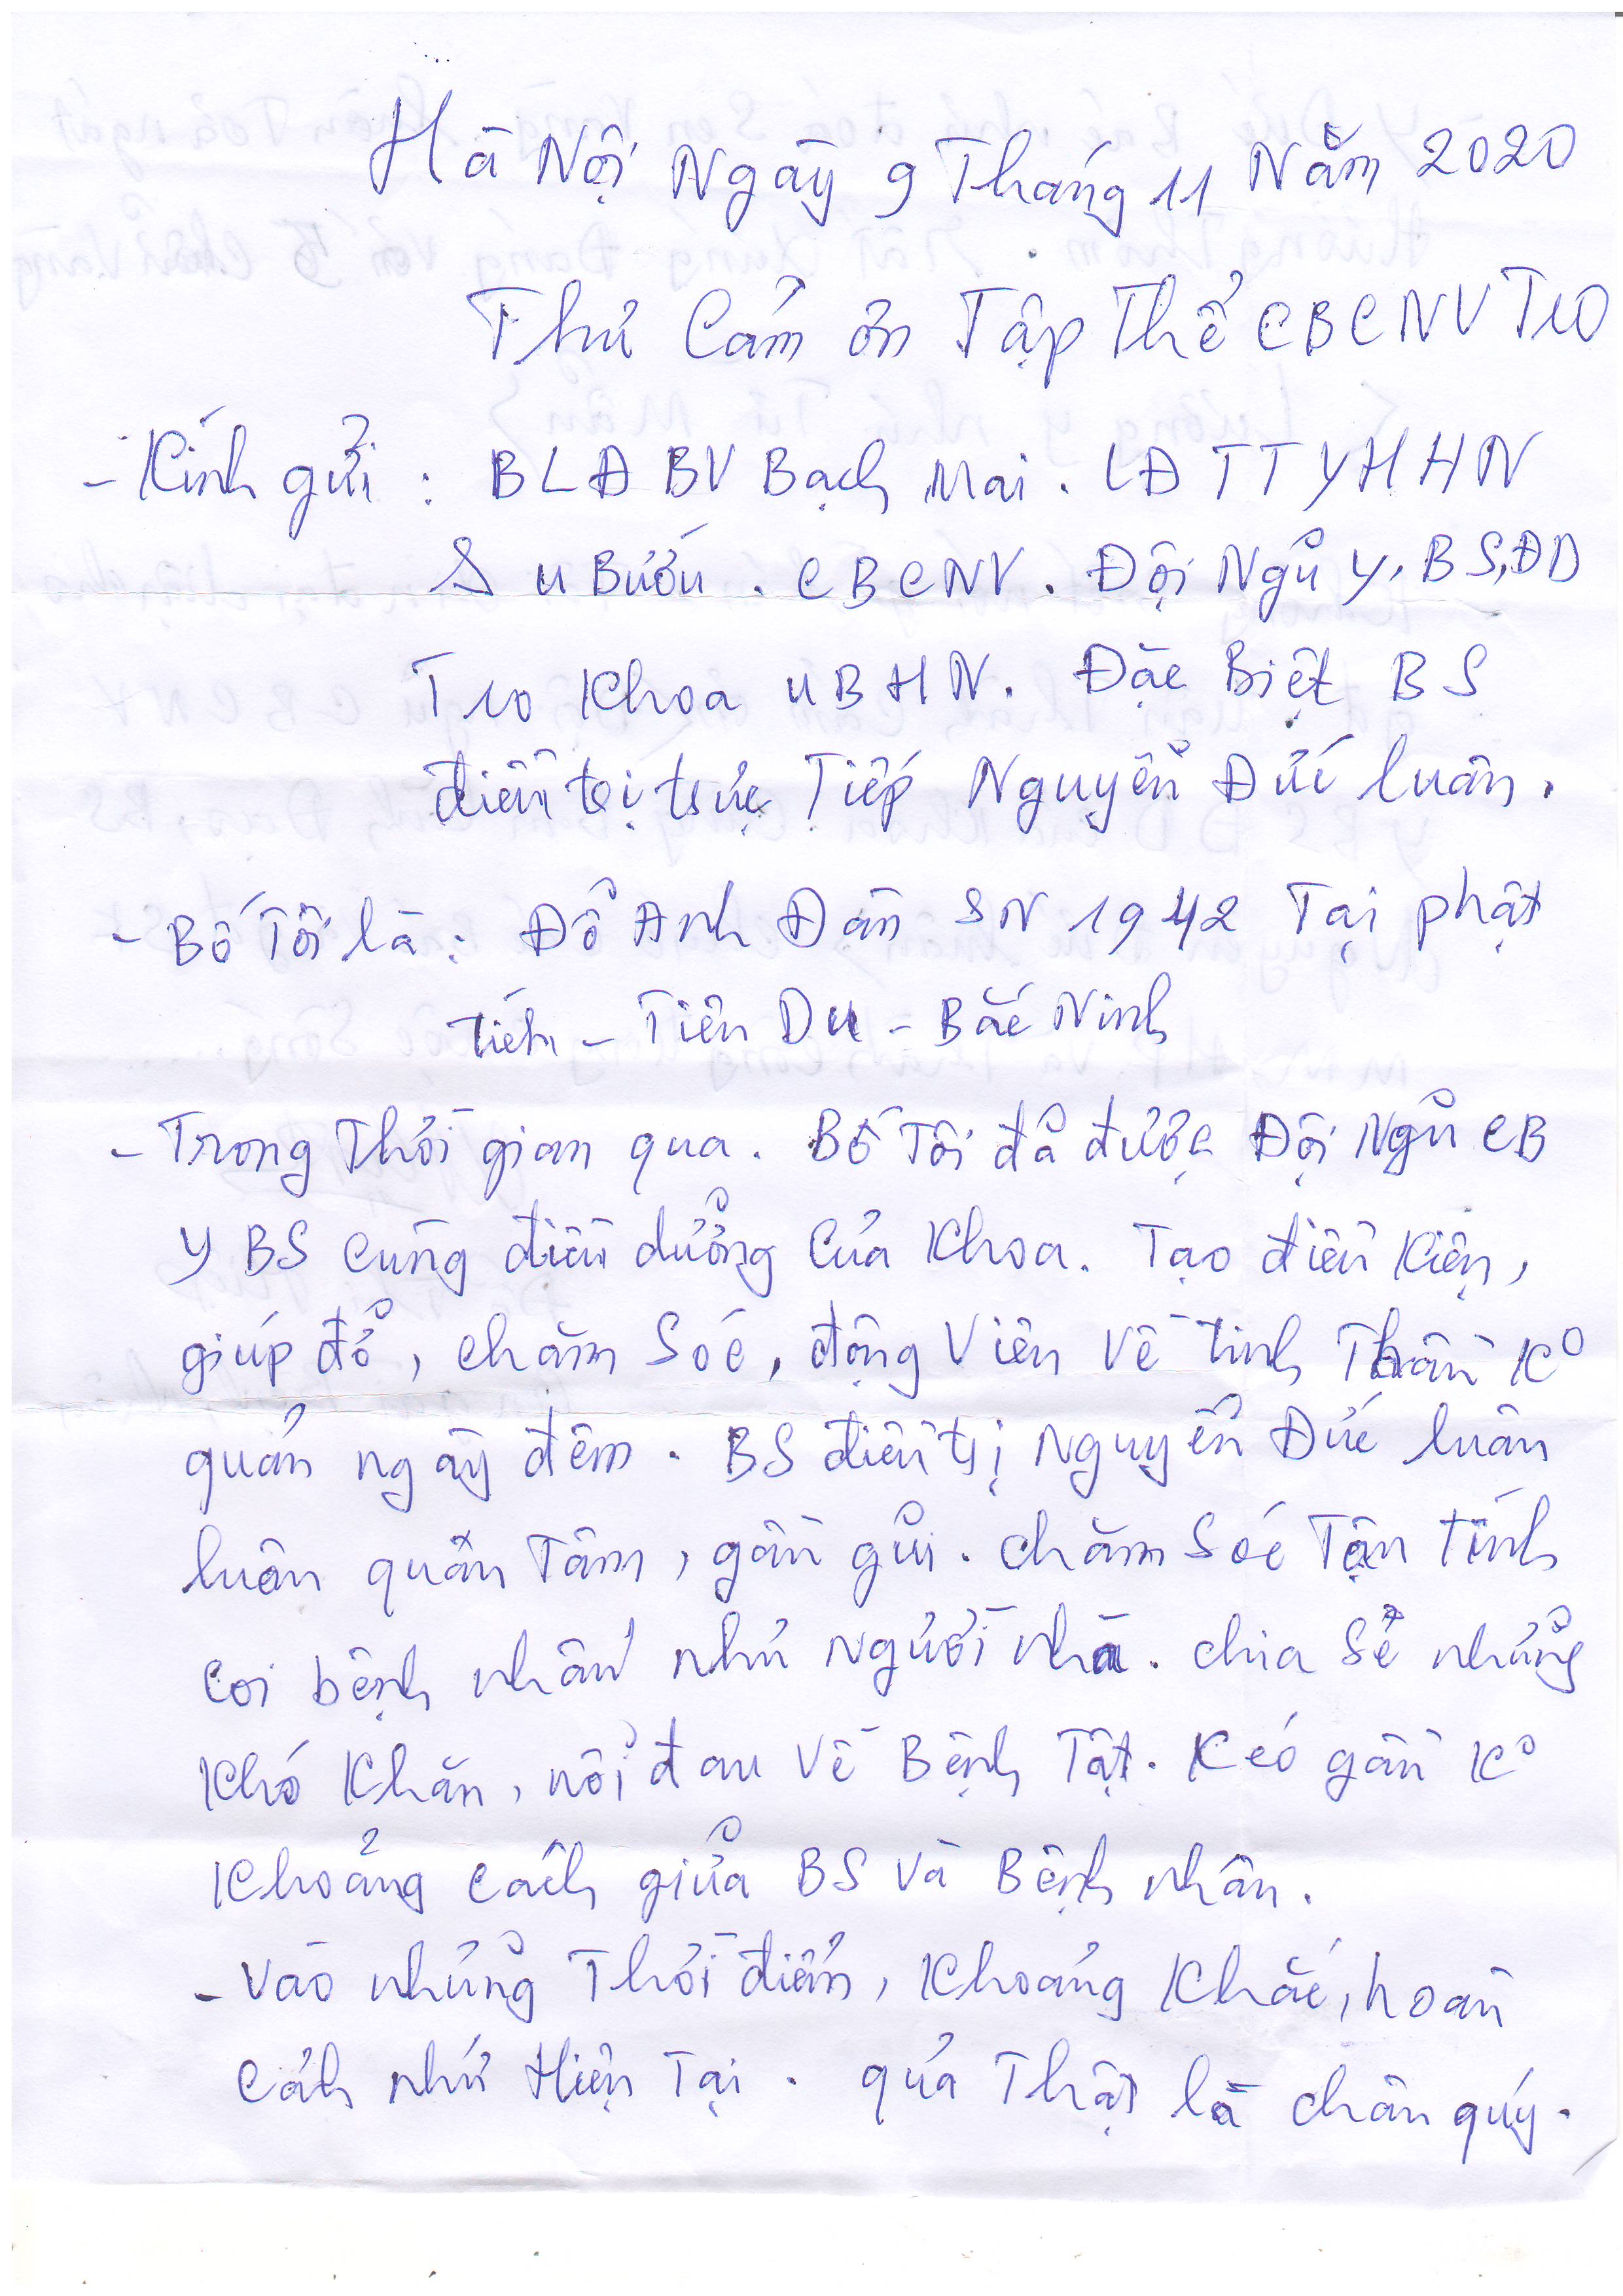 Hà Nội Ngày 9 Tháng 11 Năm 2020
Thư Cảm ơn Tập Thể CBCNV T10
- Kính gửi : BLĐ BV Bạch Mai . LĐ TT YHHN
& U Bướu . CBCNV . Đội Ngũ Y, BS, ĐD
T10 Khoa UBHN. Đặc Biệt BS
điều trị trực Tiếp Nguyễn Đức luân .
- Bố Tôi là : Đỗ Anh Dân SN 1942 Tại phật
tích - Tiên Du - Bắc Ninh
- Trong Thời gian qua . Bố Tôi đã được Đội Ngũ CB
Y BS cùng điều dưỡng của Khoa . Tạo điều kiện,
giúp đỡ, chăm Sóc, động Viên Về tinh Thần Ko
quản ngày đêm . BS điều trị Nguyễn Đức luân
luôn quân Tâm, gần gũi . chăm Sóc Tận tình
coi bệnh nhân như người nhà . chia Sẻ những
Khó Khăn, nỗi đau Về Bệnh Tật . Kéo gần Ko
Khoảng cách giữa BS và Bệnh nhân .
- Vào những Thời điểm, Khoảng Khắc, hoàn
cảnh như Hiện Tại . quả Thật là chân quý .